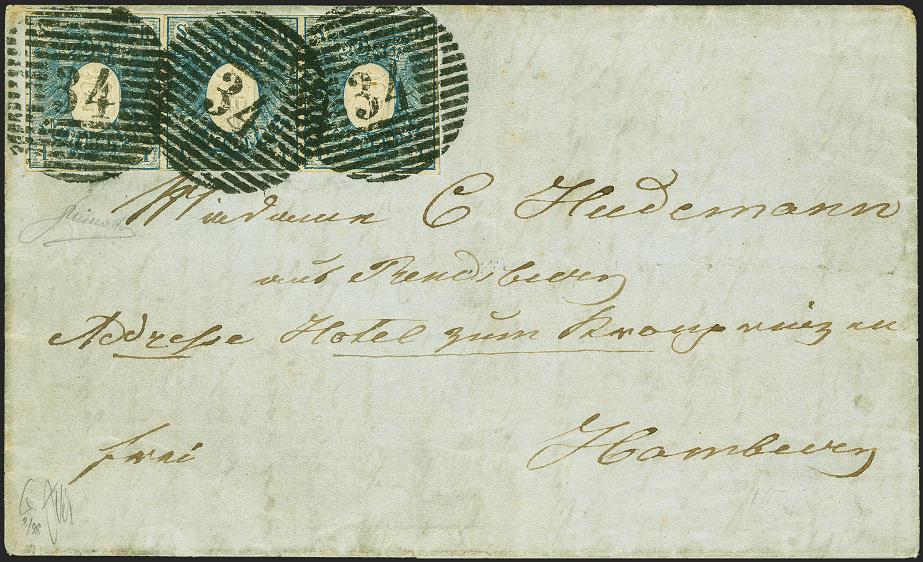 34 34 34
Madame C Hudemann
aus Rendsburg
Addresse Hotel zum Kronprinzen
frei
Hamburg